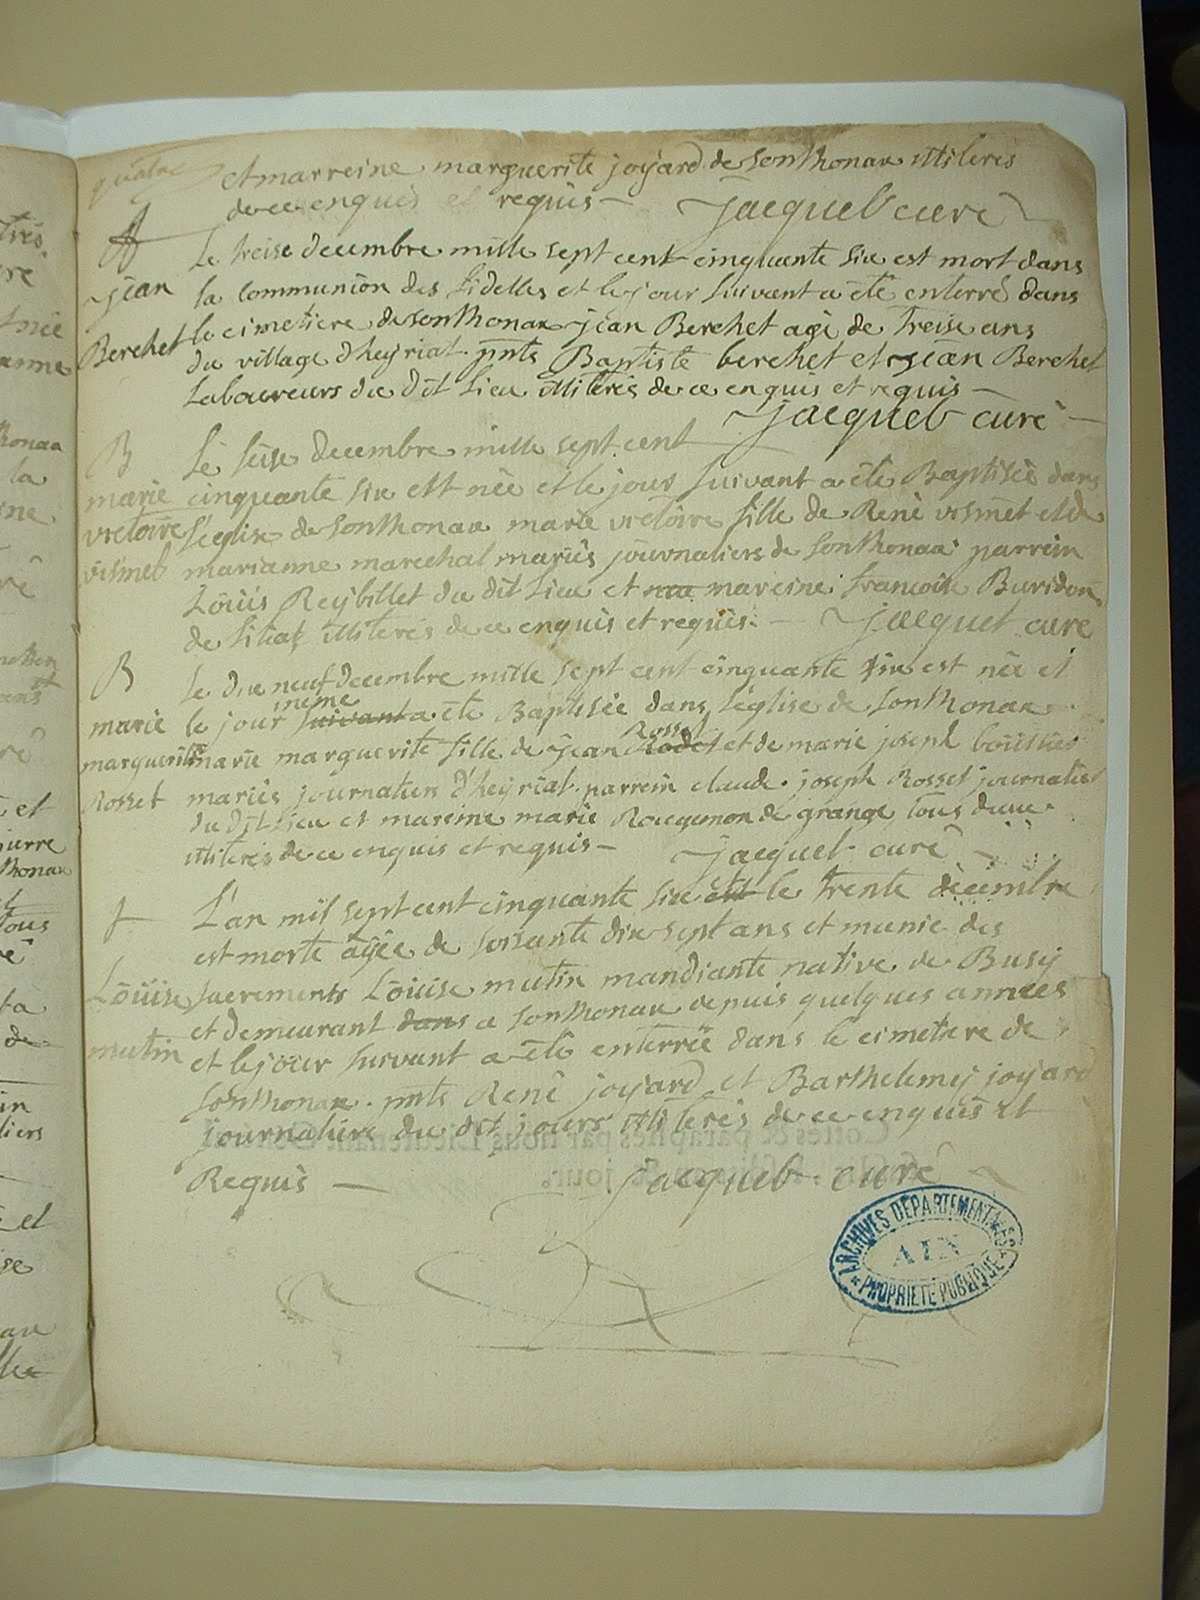 quatre
et marreine marguerite joyard de Sonthonax illiterés
de ce enquis et requis — Jacquet curé
Le treise decembre mille sept cent cinquante six est mort dans
jean
la Communion des fidelles et le jour suivant a été enterré dans
Berchet
le cimetiere de Sonthonax jean Berchet agé de treise ans
du village d'heyriat. pnts Baptiste berchet et jean Berchet
Laboureurs du dit Lieu illiterés de ce enquis et requis —
jacquet curé
B
Le seise decembre mille sept cent
marie
cinquante six est née et le jour suivant a été Baptisée dans
victoire
l'eglise de Sonthonax marie victoire fille de René vismet et de
vismet
marianne marechal mariés journaliers de Sonthonax parrein
Loüis Reybillet du dit Lieu et mareine francoise Buridon
de Siliat illiterés de ce enquis et requis. — Jacquet curé
B
Le dix neuf decembre mille sept cent cinquante six est née et
même
marie
le jour suivant a été Baptisée dans l'église de Sonthonax
Rosset
marguerite
marie marguerite fille de jean Rodet et de marie joseph
Rosset
mariés journaliers d'heyriat. parrein claude joseph Rosset journalier
du dit Lieu et mareine marie Racquemon de grange tous deux
illiterés de ce enquis et requis — Jacquet curé
L'an mil sept cent cinquante six est le trente decembre
est morte agée de soissante dix sept ans et munie des
Loüise
sacrements Loüise mutin mandiante native de Busy
et demeurant dans a Sonthonax depuis quelques années
mutin
et le jour suivant a été enterrée dans le cimetiere de
Sonthonax. pnts René joyard et Barthelemy joyard
journaliers du dit jours illiterés de ce enquis et
Requis — jacquet curé
ARCHIVES DÉPARTEMENTALES
AIN
* PROPRIÉTÉ PUBLIQUE *